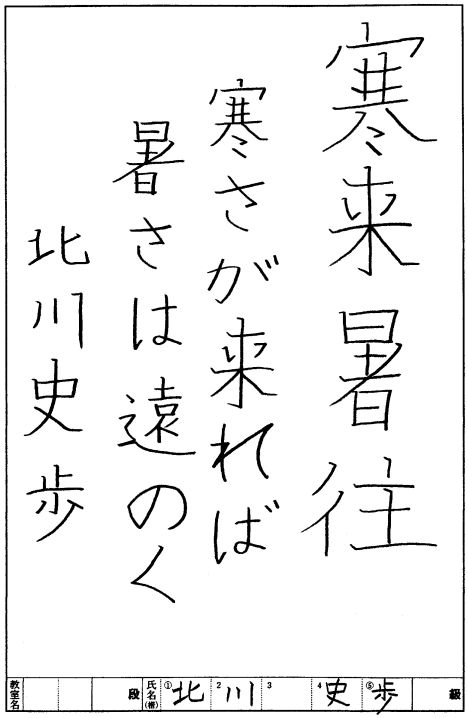 寒来暑往
寒さが来れば
暑さは遠のく
北川史歩
教室名 段 氏名(楷) ①北 2川 3 4史 ⑤歩 級